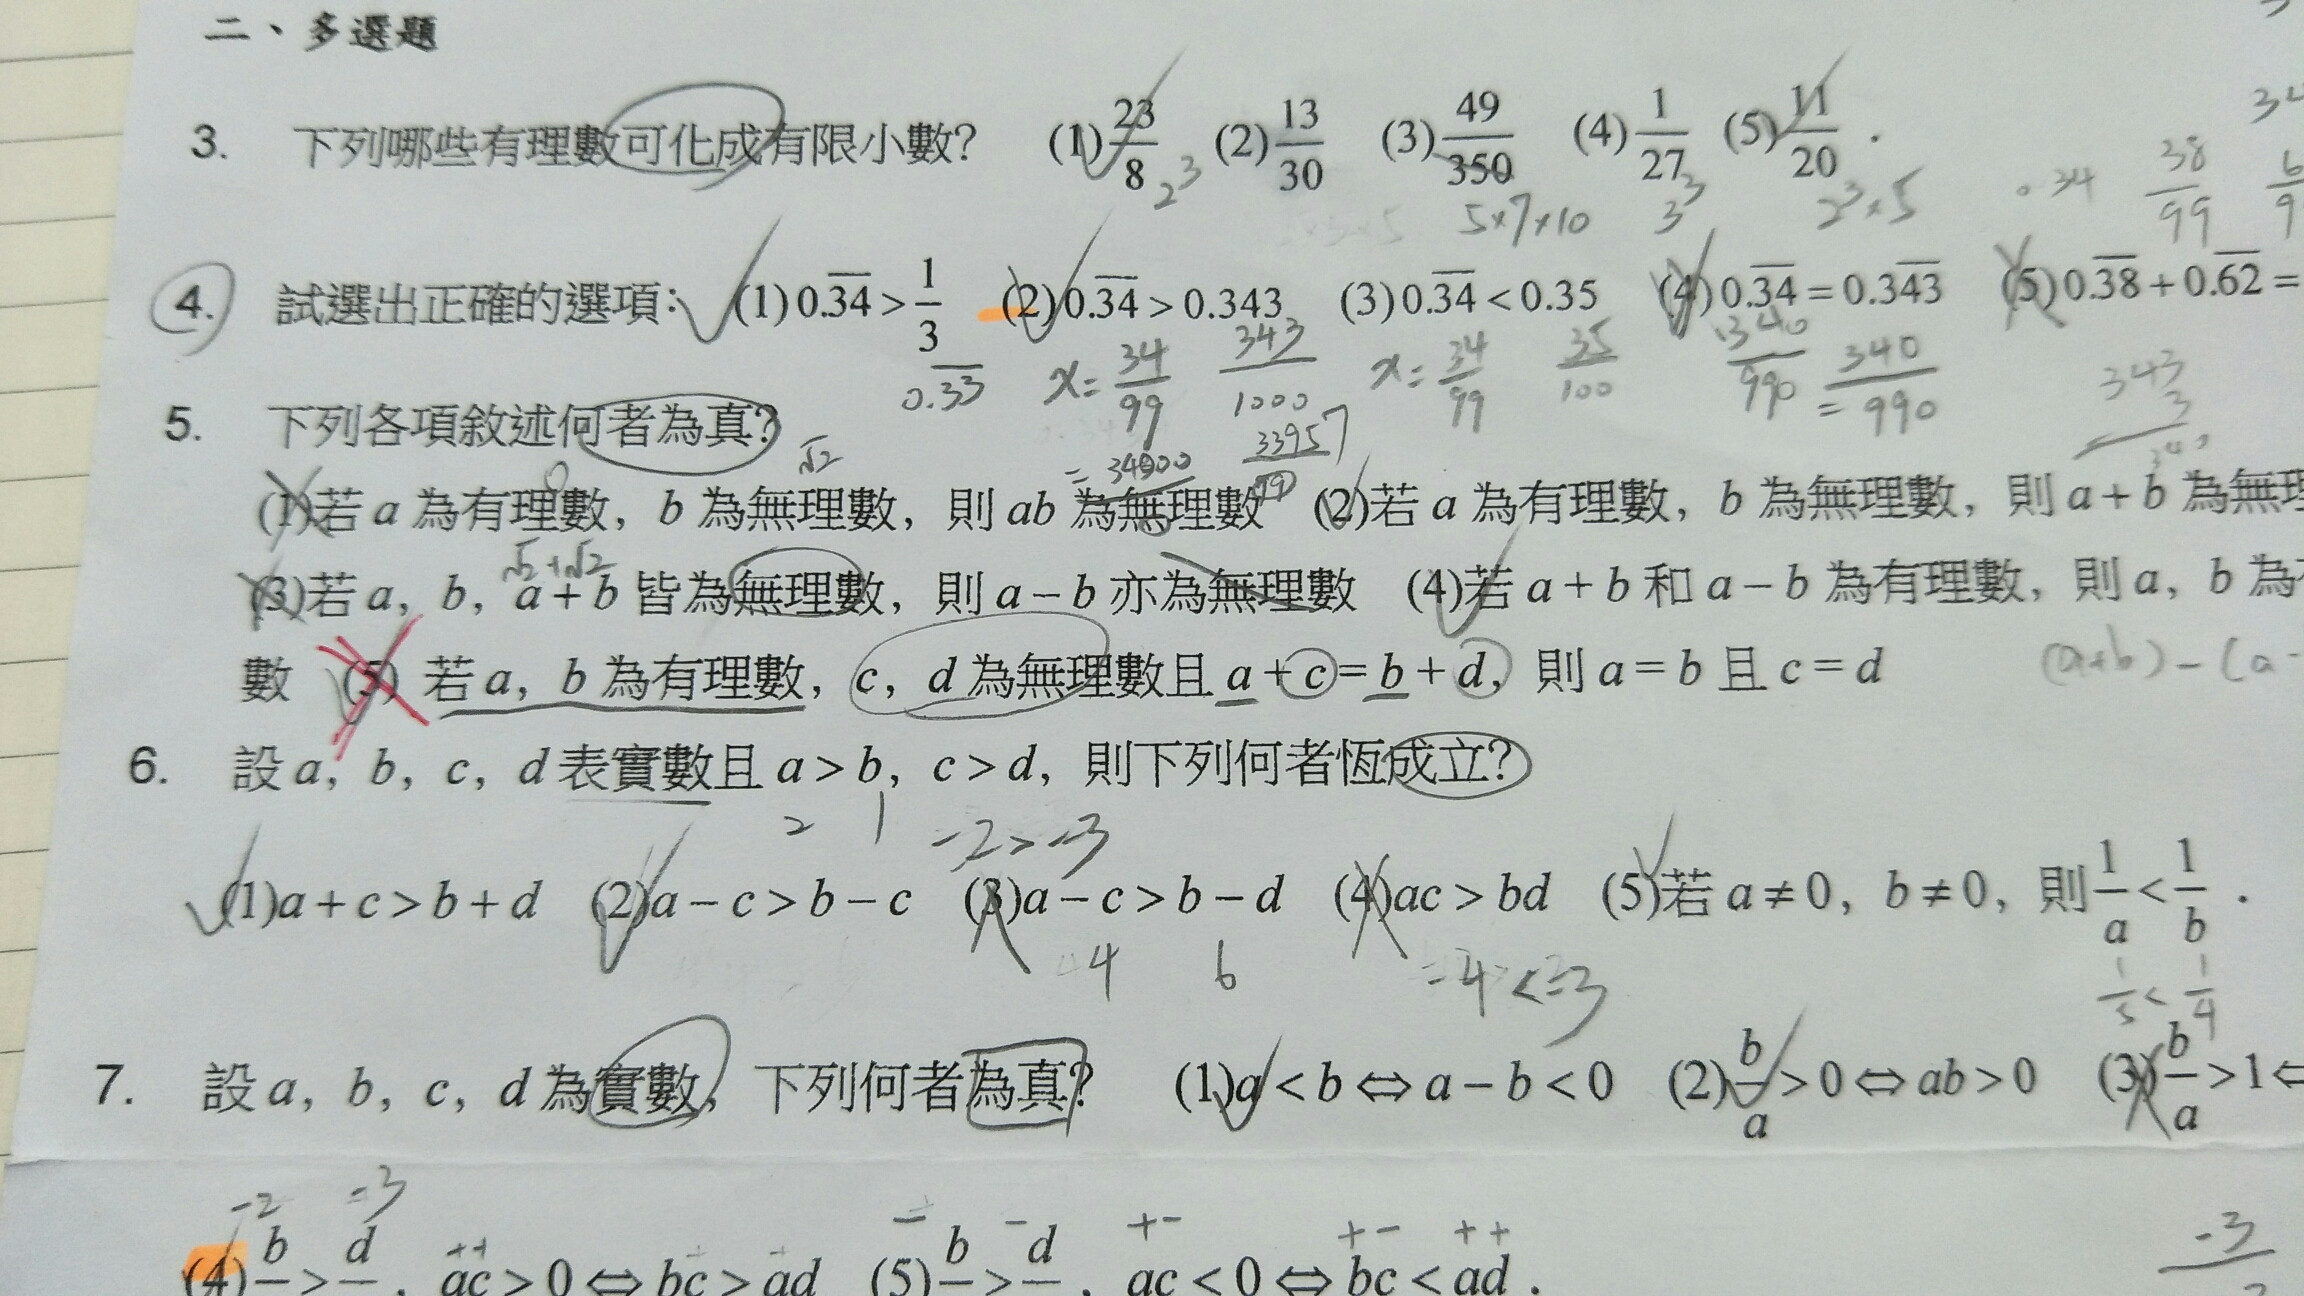 二、多選題
3. 下列哪些有理數可化成有限小數? (1) 23/8 (2) 13/30 (3) 49/350 (4) 1/27 (5) 11/20 .
2³ 5×7×10 3³ 2³×5 .34 38/99
4. 試選出正確的選項: (1) 0.3̅4̅ > 1/3 (2) 0.3̅4̅ > 0.343 (3) 0.3̅4̅ < 0.35 (4) 0.3̅4̅ = 0.34̅3̅ (5) 0.3̅8̅ + 0.6̅2̅ =
0.3̅3̅ x = 34/99 343/1000 x = 34/99 35/100 340/990 = 340/990 343
5. 下列各項敘述何者為真?
√2
(1)若 a 為有理數, b 為無理數, 則 ab 為無理數 (2)若 a 為有理數, b 為無理數, 則 a + b 為無理
√2+√2
(3)若 a, b, a + b 皆為無理數, 則 a − b 亦為無理數 (4)若 a + b 和 a − b 為有理數, 則 a, b 為
數 (5) 若 a, b 為有理數, c, d 為無理數且 a + c = b + d, 則 a = b 且 c = d
(a+b)-(a-
6. 設 a, b, c, d 表實數且 a > b, c > d, 則下列何者恆成立?
2 1 -2>-3
(1) a + c > b + d (2) a − c > b − c (3) a − c > b − d (4) ac > bd (5)若 a ≠ 0, b ≠ 0, 則 1/a < 1/b .
4 6 -4<-3 1/5 < 1/4
7. 設 a, b, c, d 為實數, 下列何者為真? (1) a < b ⇔ a − b < 0 (2) b/a > 0 ⇔ ab > 0 (3) b/a > 1 ⇔
-2 -3 - - +- +- ++ -3
(4) b > d , ac > 0 ⇔ bc > ad (5) b > d , ac < 0 ⇔ bc < ad .